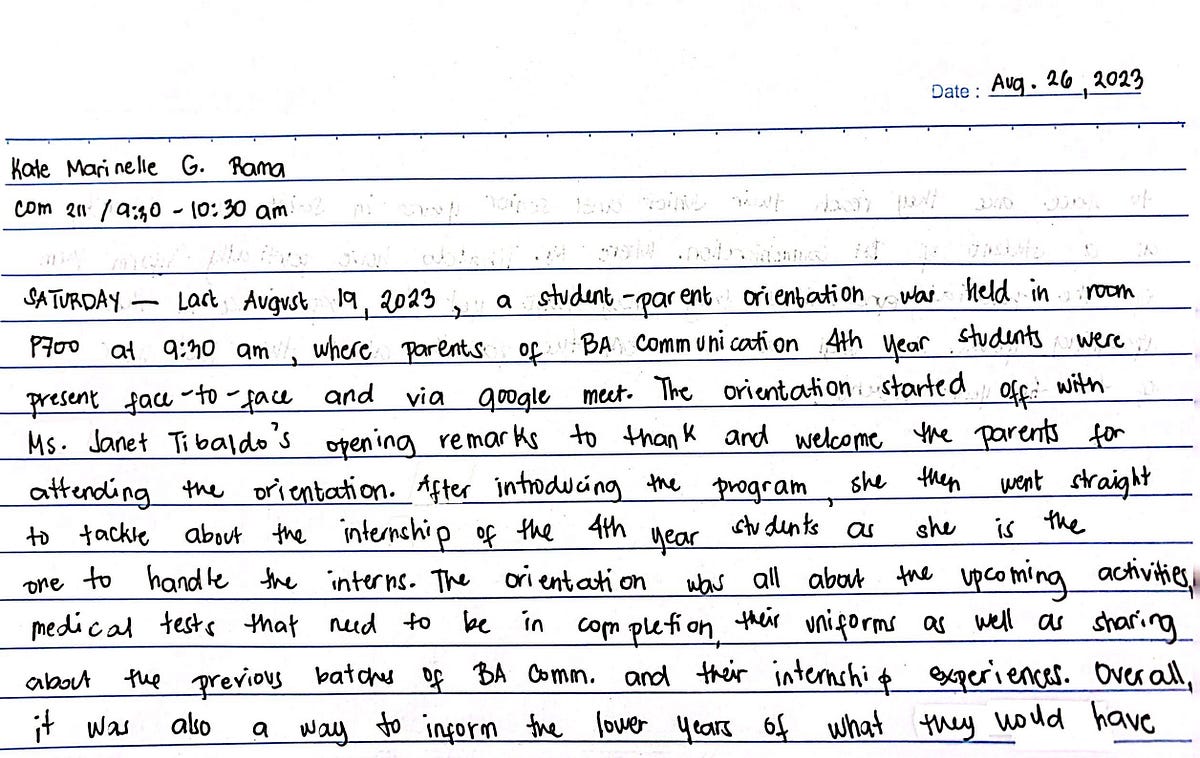 Date : Aug. 26, 2023
Kate Marinelle G. Rama
com 211 / 9:30 - 10:30 am
SATURDAY — Last August 19, 2023, a student-parent orientation was held in room
P700 at 9:30 am, where parents of BA Communication 4th year students were
present face-to-face and via google meet. The orientation started off with
Ms. Janet Tibaldo's opening remarks to thank and welcome the parents for
attending the orientation. After introducing the program, she then went straight
to tackle about the internship of the 4th year students as she is the
one to handle the interns. The orientation was all about the upcoming activities,
medical tests that need to be in completion, their uniforms as well as sharing
about the previous batches of BA Comm. and their internship experiences. Overall,
it was also a way to inform the lower years of what they would have